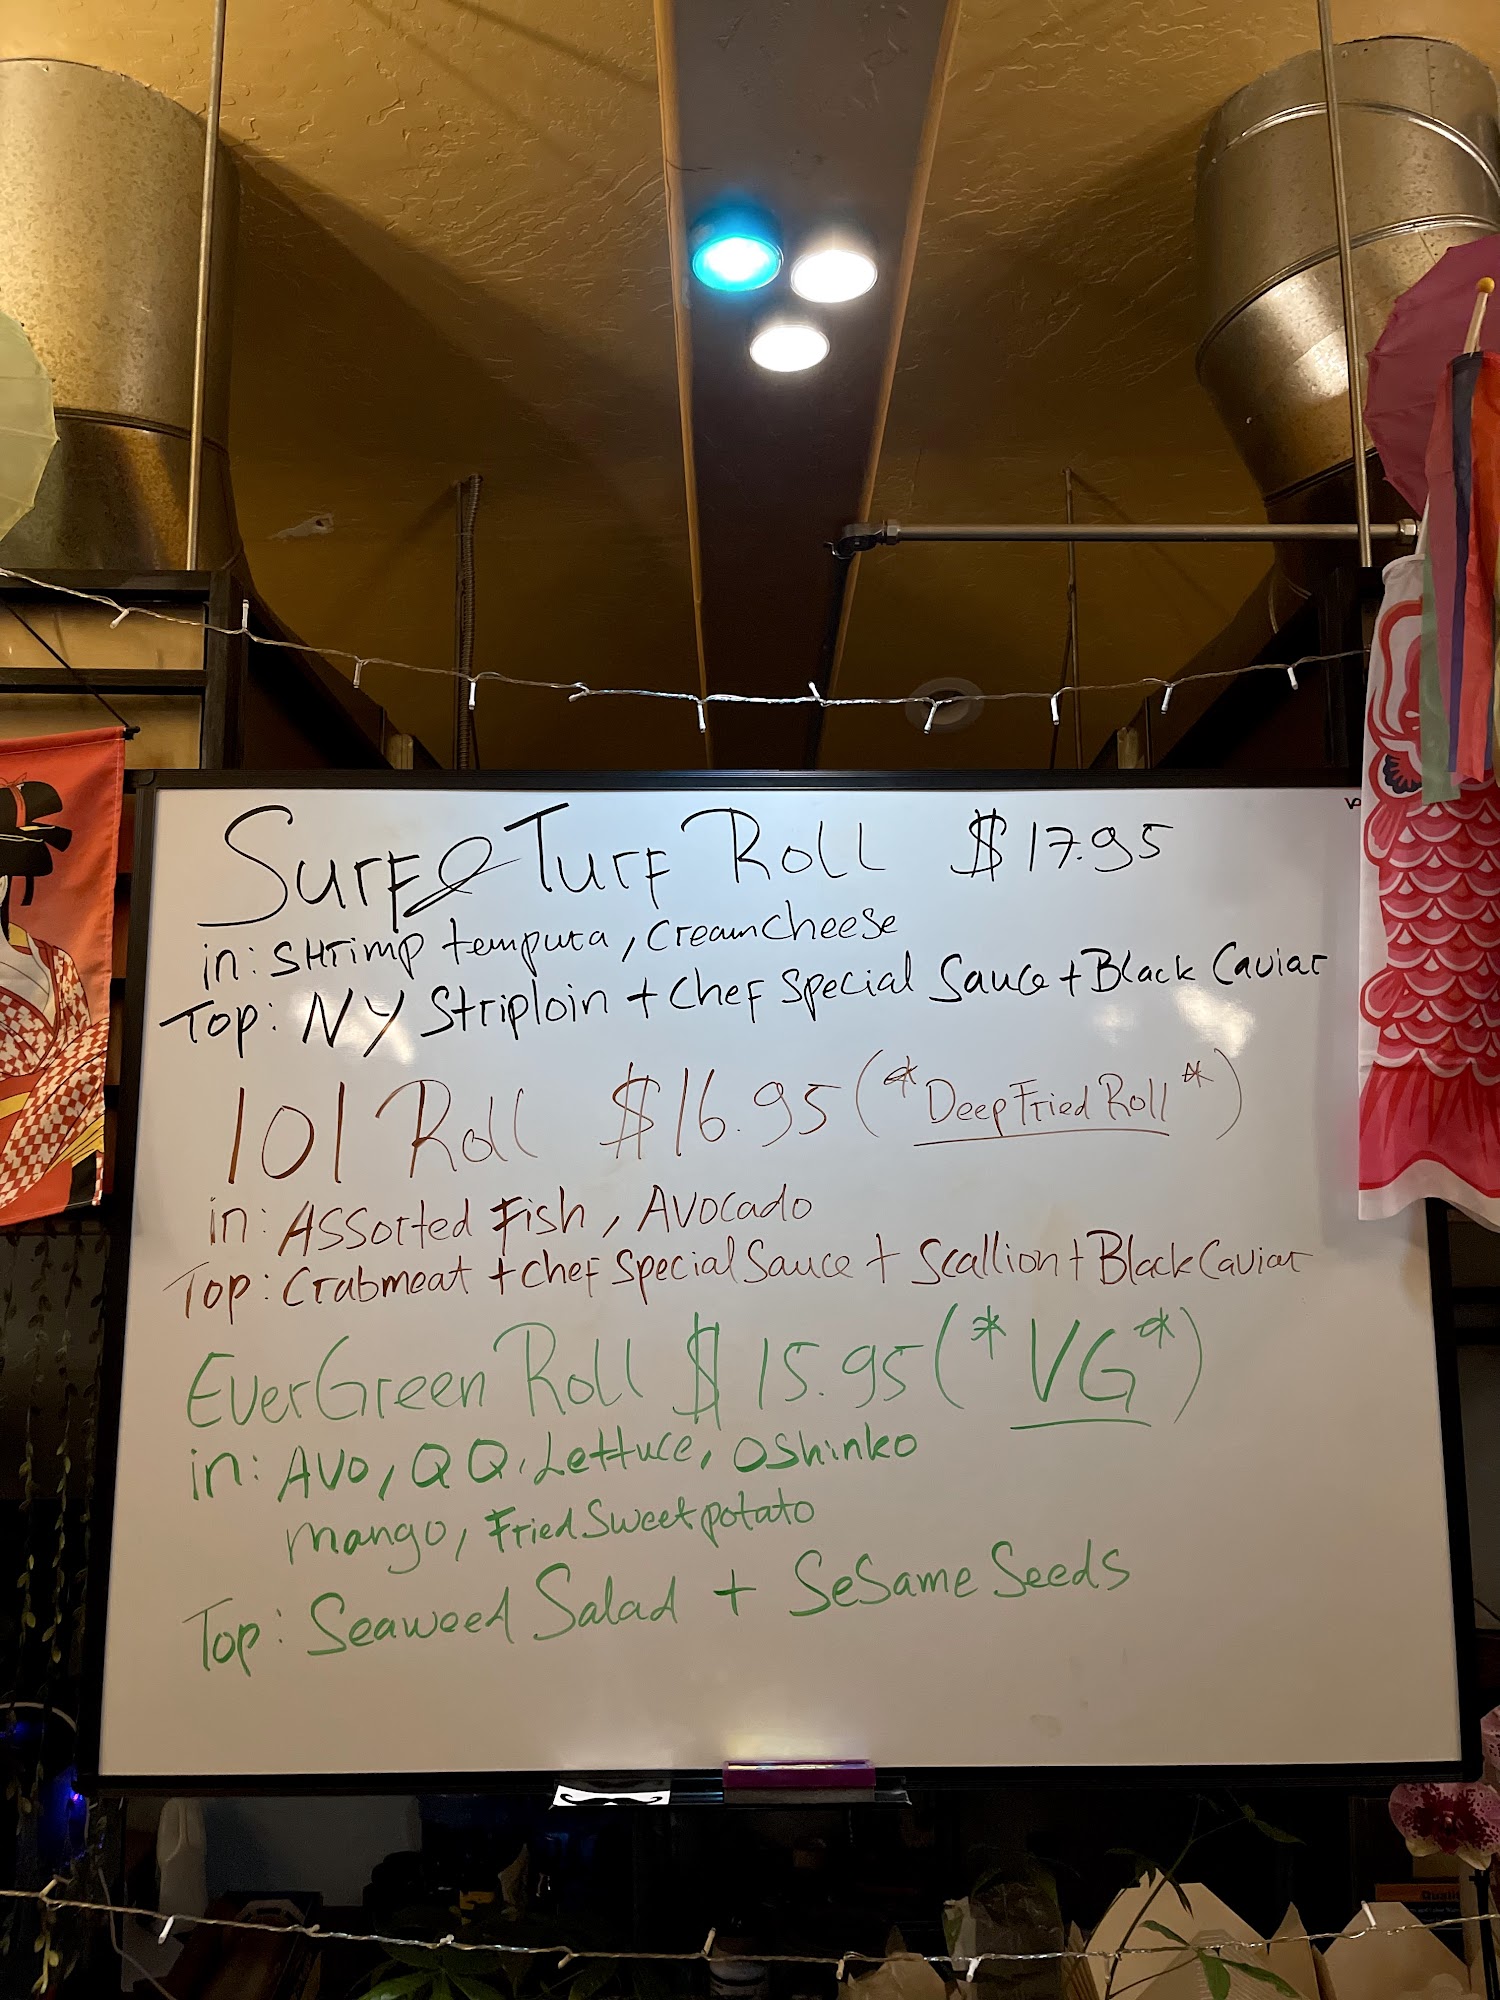 Surf & Turf Roll $17.95
in: Shrimp tempura, Cream cheese
Top: NY Striploin + Chef Special Sauce + Black Caviar
101 Roll $16.95 (*Deep Fried Roll*)
in: Assorted Fish, Avocado
Top: Crabmeat + Chef Special Sauce + Scallion + Black Caviar
EverGreen Roll $15.95 (*VG*)
in: Avo, QQ, Lettuce, Oshinko
mango, Fried Sweet potato
Top: Seaweed Salad + Sesame Seeds